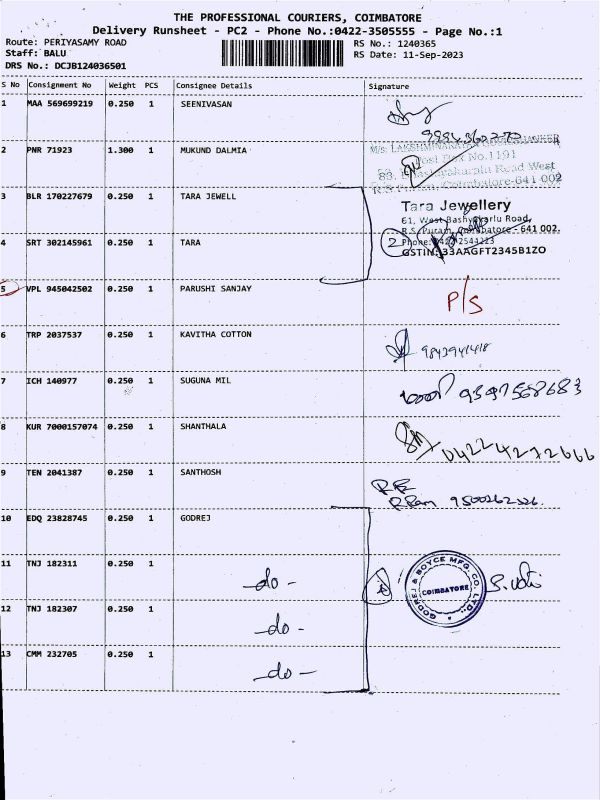 THE PROFESSIONAL COURIERS, COIMBATORE
Delivery Runsheet - PC2 - Phone No.:0422-3505555 - Page No.:1
Route: PERIYASAMY ROAD RS No.: 1240365
Staff: BALU RS Date: 11-Sep-2023
DRS No.: DCJB124036501
S No Consignment No Weight PCS Consignee Details Signature
1 MAA 569699219 0.250 1 SEENIVASAN
2 PNR 71923 1.300 1 MUKUND DALMIA
Post Box No.1191
Road West
R.S. Puram, Coimbatore-641 002
3 BLR 170227679 0.250 1 TARA JEWELL
Tara Jewellery
61, West Bashyakarlu Road,
R.S. Puram, Coimbatore - 641 002.
4 SRT 302145961 0.250 1 TARA
2
GSTIN: 33AAGFT2345B1ZO
5 VPL 945042502 0.250 1 PARUSHI SANJAY P/S
6 TRP 2037537 0.250 1 KAVITHA COTTON 9842941418
7 ICH 140977 0.250 1 SUGUNA MIL
8 KUR 7000157074 0.250 1 SHANTHALA 0422 4272666
9 TEN 2041387 0.250 1 SANTHOSH
10 EDQ 23828745 0.250 1 GODREJ
11 TNJ 182311 0.250 1 -do- GODREJ & BOYCE MFG. CO. LTD., COIMBATORE
12 TNJ 182307 0.250 1 -do-
13 CMM 232705 0.250 1 -do-